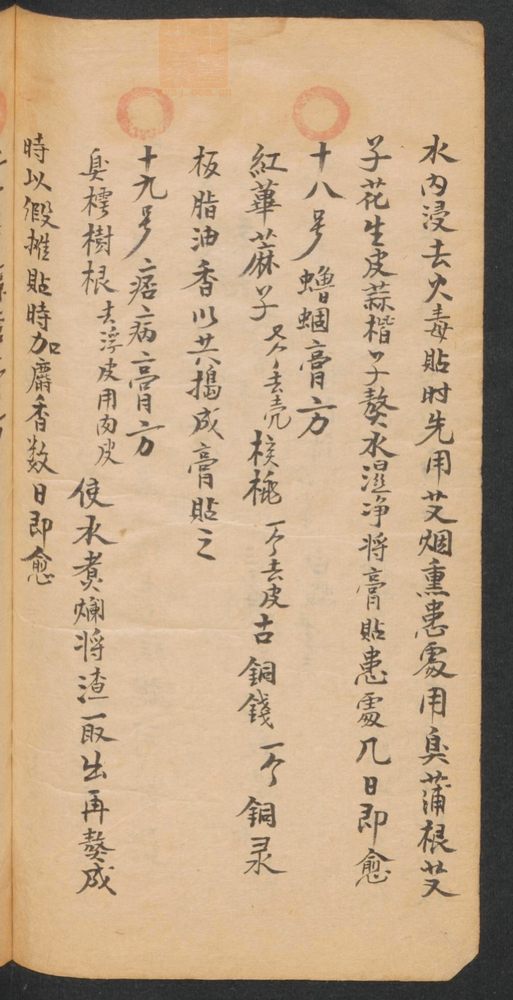 水內浸去火毒貼时先用艾烟熏患處用臭蒲根艾
子花生皮蒜楷子熬水湿净将膏貼患處几日即愈
十八号 蟾蜖膏方
紅蓽蔴子 又个去壳 核桃 一个去皮 古銅錢 一个 銅录
板脂油香以共搗成膏貼之
十九号 痞病膏方
臭樗樹根 去浮皮用肉皮 使水煮爛将渣一取出再熬成
時以假摊貼時加麝香数日即愈